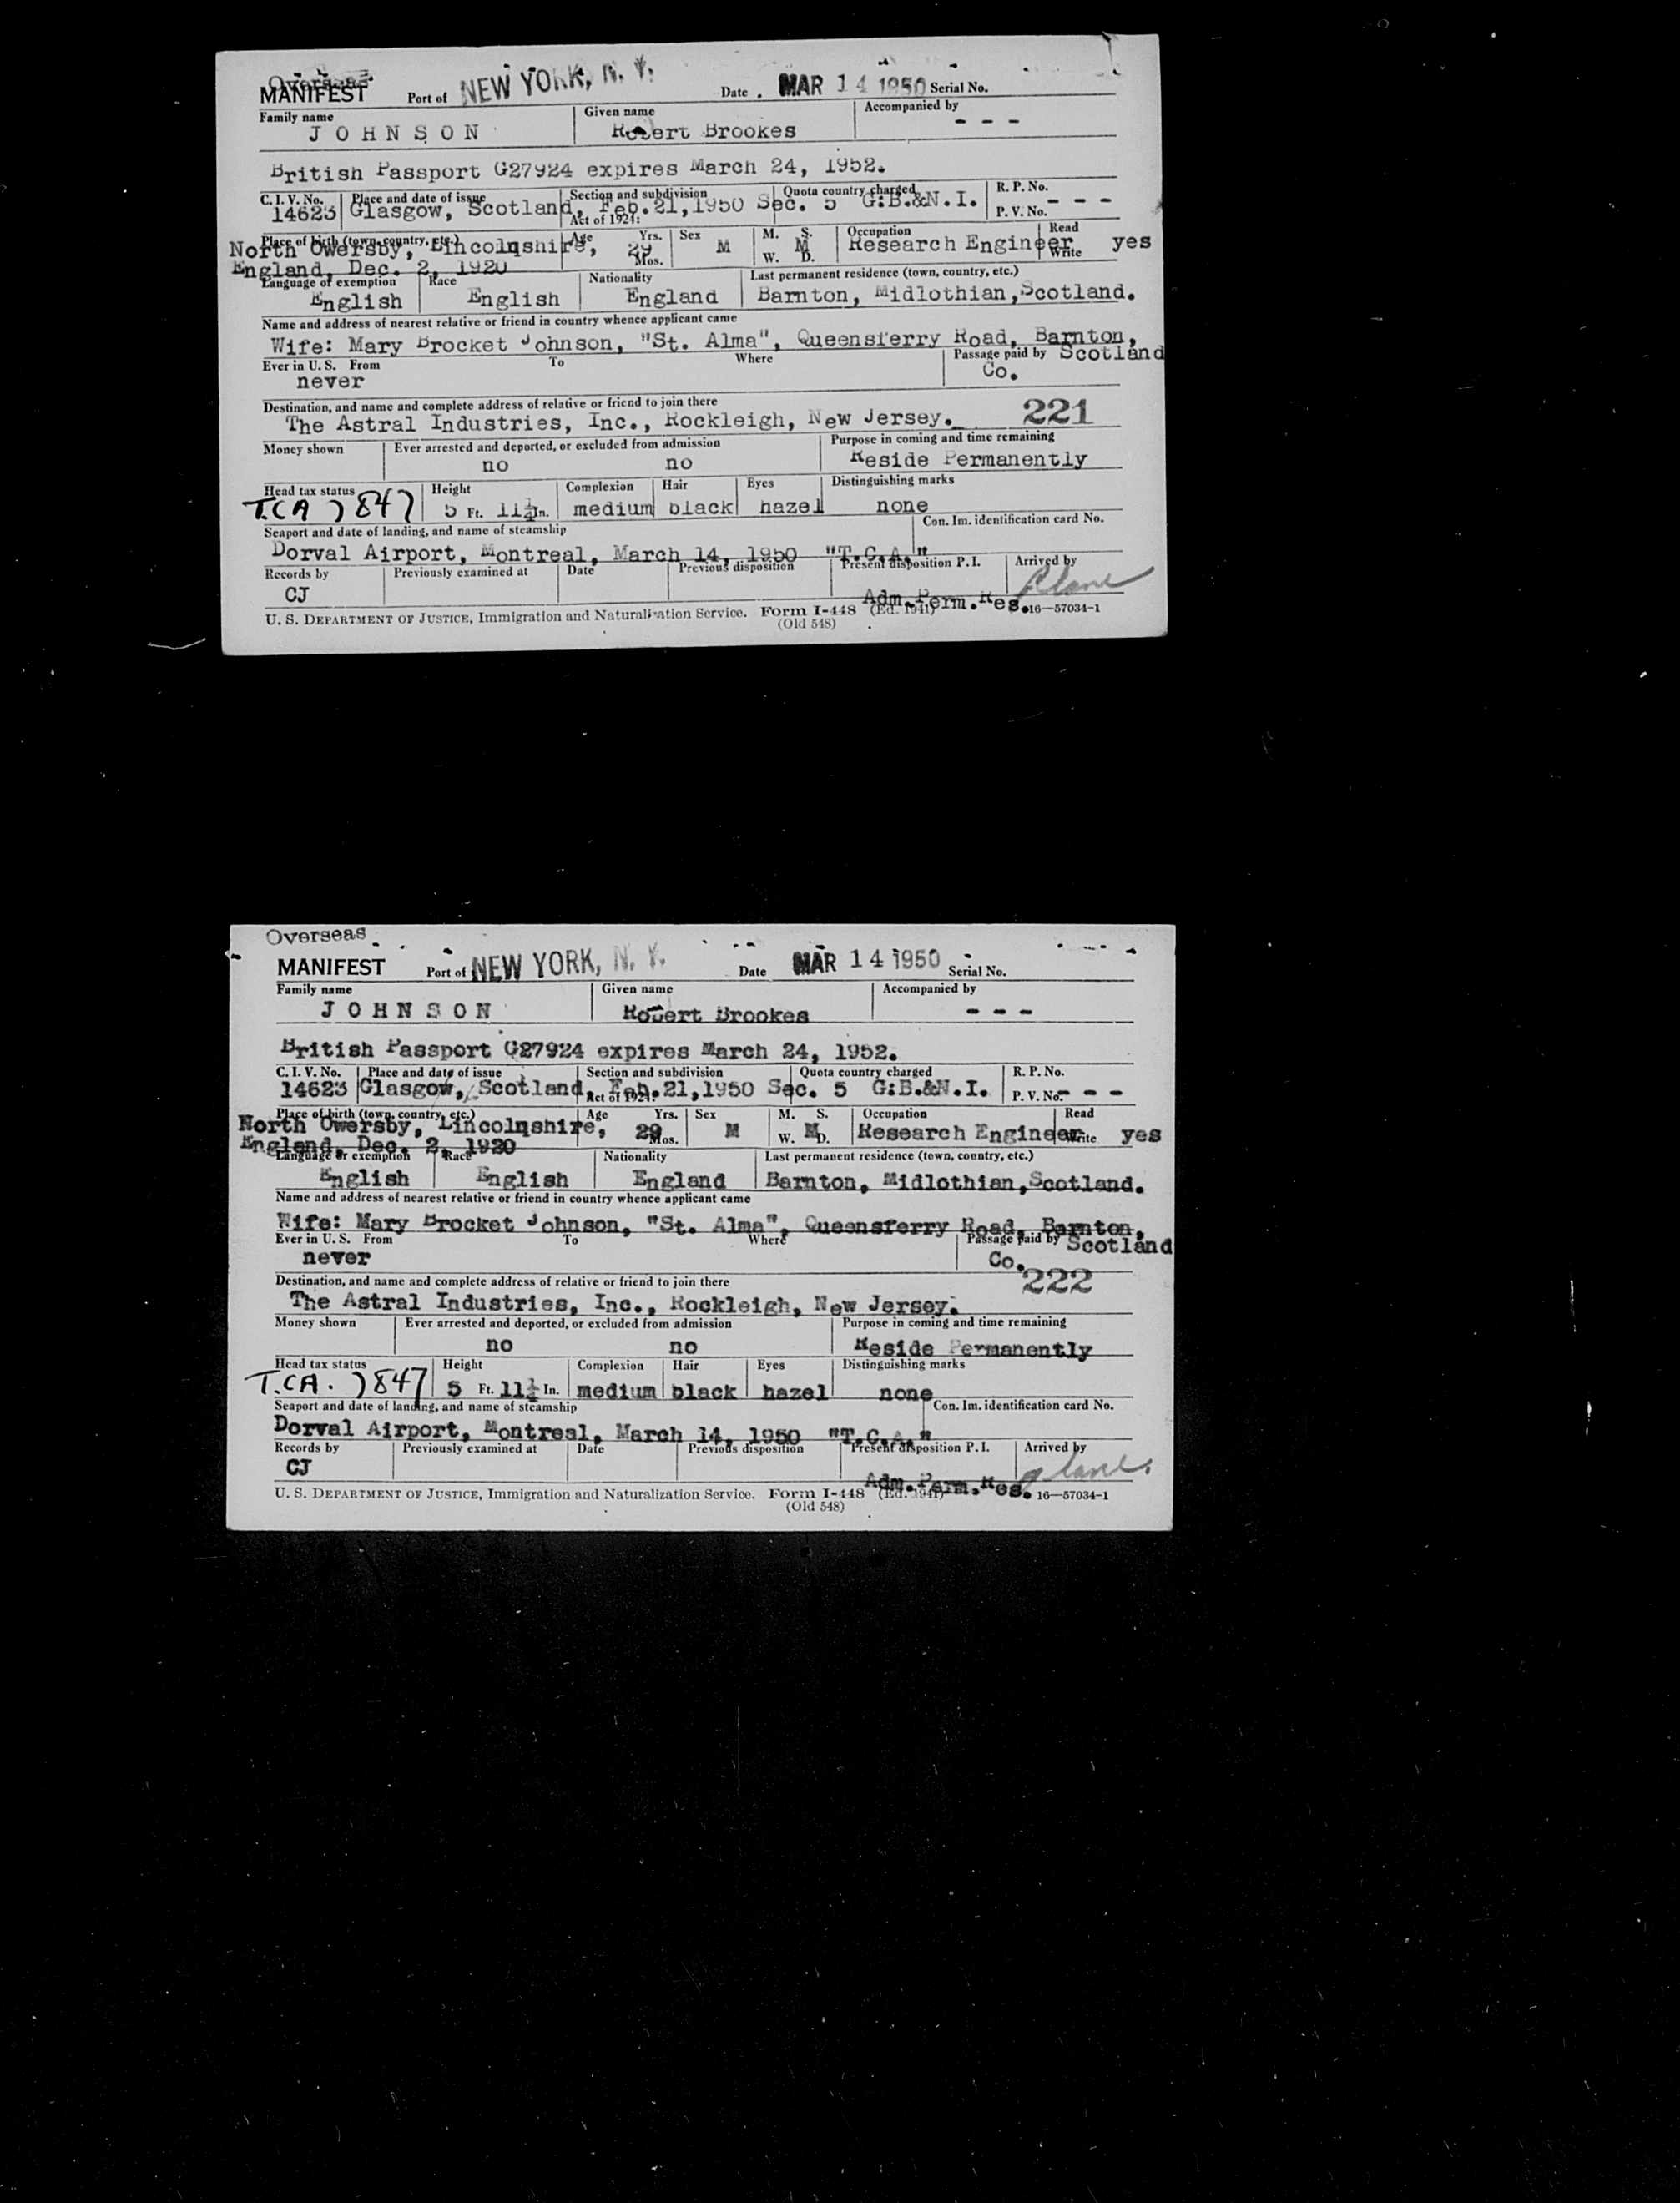 Overseas
MANIFEST Port of NEW YORK, N. Y. Date MAR 14 1950 Serial No.
Family name Given name Accompanied by
JOHNSON Robert Brookes - - -
British Passport G27924 expires March 24, 1952.
C. I. V. No. Place and date of issue Section and subdivision Quota country charged R. P. No.
14623 Glasgow, Scotland, Feb.21,1950 Sec. 5 G.B.&N.I. - - -
Act of 1924: P. V. No.
Place of birth (town, country, etc.) Age Yrs. Sex M. S. Occupation Read
North Owersby, Lincolnshire, 29 M M Research Engineer yes
Mos. W. D. Write
England, Dec. 2, 1920
Language or exemption Race Nationality Last permanent residence (town, country, etc.)
English English England Barnton, Midlothian, Scotland.
Name and address of nearest relative or friend in country whence applicant came
Wife: Mary Brocket Johnson, "St. Alma", Queensferry Road, Barnton,
Ever in U. S. From To Where Passage paid by Scotland
never Co.
Destination, and name and complete address of relative or friend to join there
The Astral Industries, Inc., Rockleigh, New Jersey. 221
Money shown Ever arrested and deported, or excluded from admission Purpose in coming and time remaining
no no Reside Permanently
Head tax status Height Complexion Hair Eyes Distinguishing marks
T.CA 847 5 Ft. 11½ In. medium black hazel none
Seaport and date of landing, and name of steamship Con. Im. identification card No.
Dorval Airport, Montreal, March 14, 1950 "T.C.A."
Records by Previously examined at Date Previous disposition Present disposition P. I. Arrived by
CJ Adm.Perm.Res. Plane
U. S. DEPARTMENT OF JUSTICE, Immigration and Naturalization Service. Form I-448 (Ed. 1941) 16—57034-1
(Old 548)
Overseas
MANIFEST Port of NEW YORK, N. Y. Date MAR 14 1950 Serial No.
Family name Given name Accompanied by
JOHNSON Robert Brookes - - -
British Passport G27924 expires March 24, 1952.
C. I. V. No. Place and date of issue Section and subdivision Quota country charged R. P. No.
14623 Glasgow, Scotland, Feb.21,1950 Sec. 5 G.B.&N.I. - - -
Act of 1924: P. V. No.
Place of birth (town, country, etc.) Age Yrs. Sex M. S. Occupation Read
North Owersby, Lincolnshire, 29 M M Research Engineer yes
Mos. W. D. Write
England, Dec. 2, 1920
Language or exemption Race Nationality Last permanent residence (town, country, etc.)
English English England Barnton, Midlothian, Scotland.
Name and address of nearest relative or friend in country whence applicant came
Wife: Mary Brocket Johnson, "St. Alma", Queensferry Road, Barnton,
Ever in U. S. From To Where Passage paid by Scotland
never Co.
222
Destination, and name and complete address of relative or friend to join there
The Astral Industries, Inc., Rockleigh, New Jersey.
Money shown Ever arrested and deported, or excluded from admission Purpose in coming and time remaining
no no Reside Permanently
Head tax status Height Complexion Hair Eyes Distinguishing marks
T.CA. 847 5 Ft. 11½ In. medium black hazel none
Seaport and date of landing, and name of steamship Con. Im. identification card No.
Dorval Airport, Montreal, March 14, 1950 "T.C.A."
Records by Previously examined at Date Previous disposition Present disposition P. I. Arrived by
CJ Adm.Perm.Res. plane
U. S. DEPARTMENT OF JUSTICE, Immigration and Naturalization Service. Form I-448 (Ed. 1941) 16—57034-1
(Old 548)